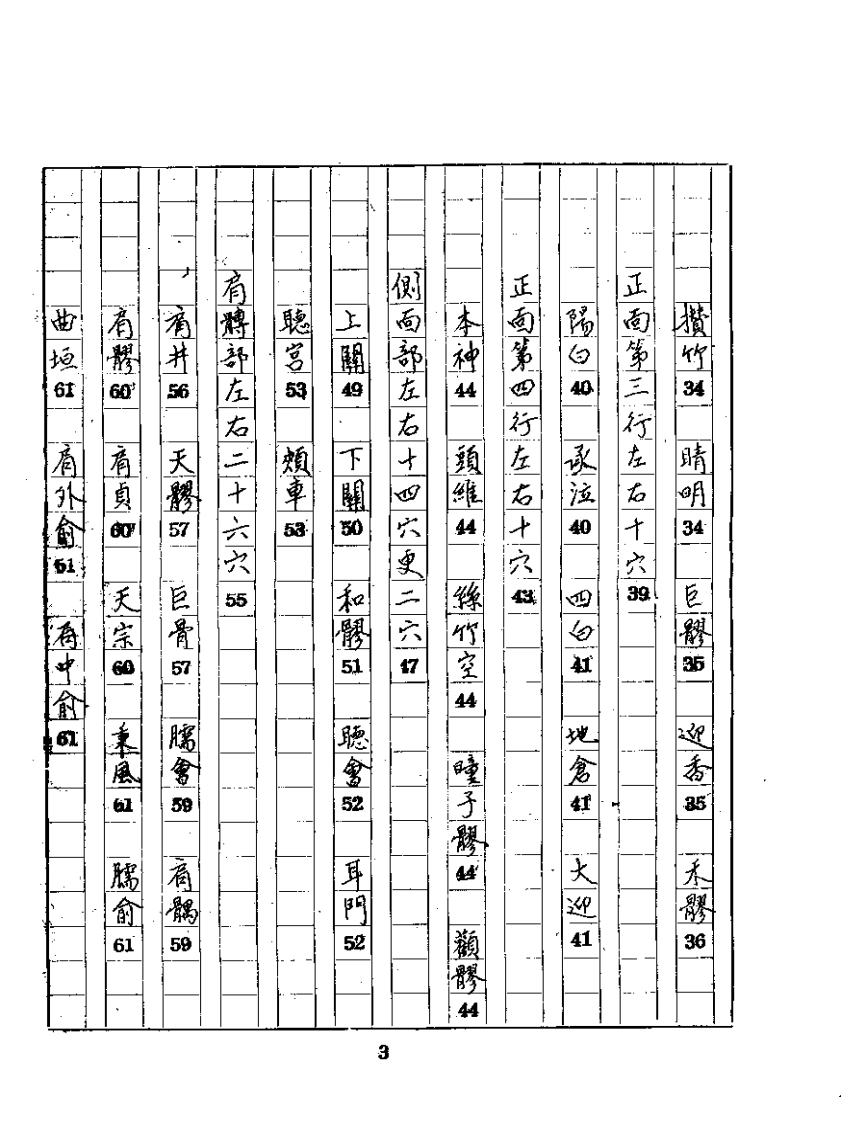 攅竹34 睛明34 巨髎35 迎香35 禾髎36
正面第三行左右十穴39
陽白40 承泣40 四白41 地倉41 大迎41
正面第四行左右十穴43
本神44 頭維44 絲竹空44 瞳子髎44 顴髎44
側面部左右十四穴更二穴47
上關49 下關50 和髎51 聽會52 耳門52
聽宮53 頬車53
肩髆部左右二十六穴55
肩井56 天髎57 巨骨57 臑會59 肩髃59
肩髎60 肩貞60 天宗60 秉風61 臑俞61
曲垣61 肩外俞61 肩中俞61
3